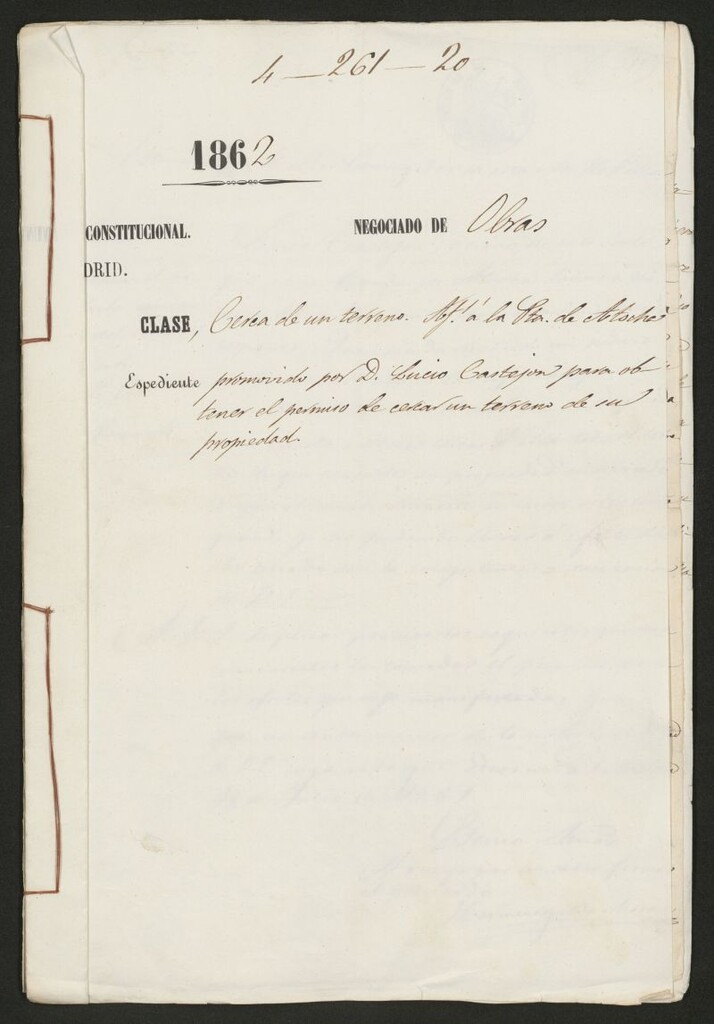 4 — 261 — 20
1862
CONSTITUCIONAL. NEGOCIADO DE Obras
DRID.
CLASE, Cerca de un terreno. Af.ª á la Pta. de Atocha
Espediente promovido por D. Lucio Castejon para ob-
tener el permiso de cercar un terreno de su
propiedad.